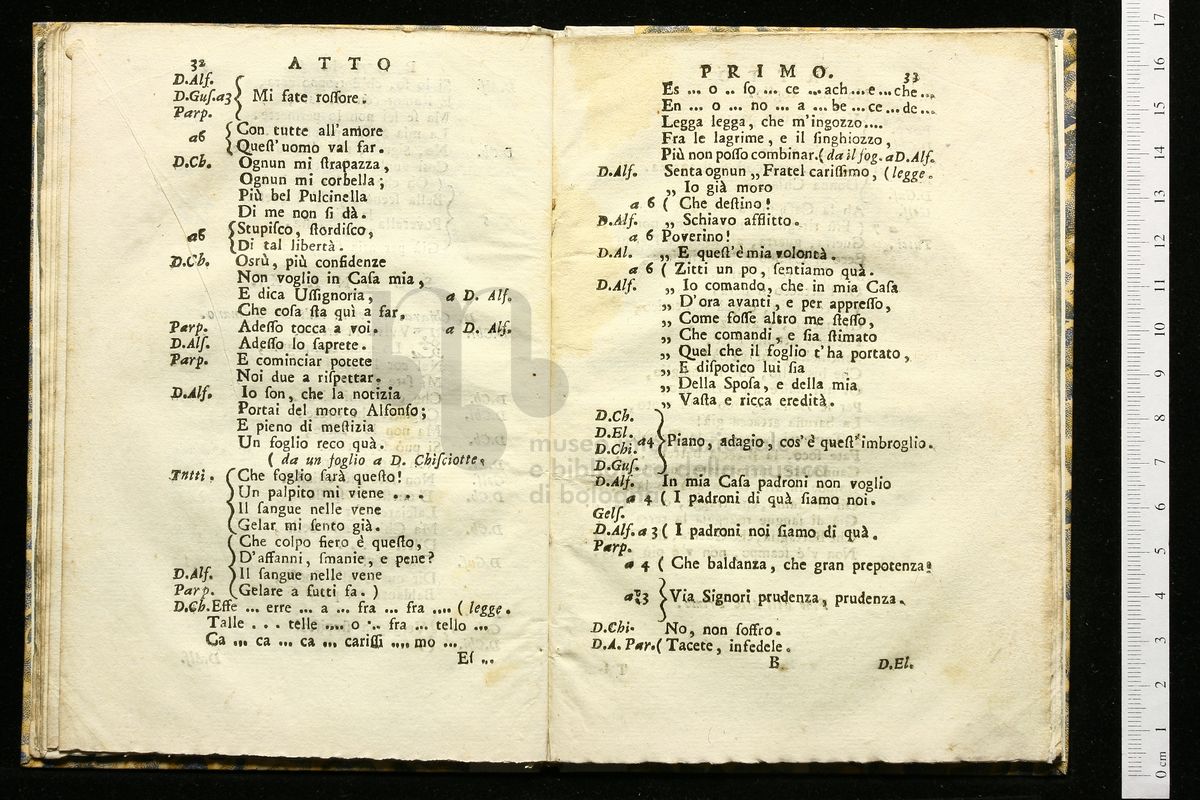 32 ATTO
D.Alſ.
D.Guſ.a3 Mi fate roſſore.
Parp.
a6 Con tutte all'amore
Queſt'uomo val far.
D.Ch. Ognun mi ſtrapazza,
Ognun mi corbella;
Più bel Pulcinella
Di me non ſi dà.
a6 Stupiſco, ſtordiſco,
Di tal libertà.
D.Ch. Osrù, più confidenze
Non voglio in Caſa mia,
E dica Uſſignoria, a D. Alſ.
Che coſa ſta quì a far,
Parp. Adeſſo tocca a voi. a D. Alſ.
D.Alſ. Adeſſo lo ſaprete.
Parp. E cominciar potete
Noi due a riſpettar.
D.Alſ. Io ſon, che la notizia
Portai del morto Alfonſo;
E pieno di meſtizia
Un foglio reco quà.
( da un foglio a D. Chiſciotte,
Tntti. Che foglio ſarà queſto!
Un palpito mi viene . . .
Il ſangue nelle vene
Gelar mi ſento già.
Che colpo fiero è queſto,
D'affanni, ſmanie, e pene?
D.Alſ. Il ſangue nelle vene
Parp. Gelare a tutti fa. )
D.Ch. Effe ... erre ... a ... fra ... fra .... ( legge.
Talle . . . telle .... o ... fra ... tello ...
Ca ... ca ... ca ... cariſſi .... mo ...
Eſ ...
PRIMO. 33
Es ... o .. ſo ... ce ... ach ... e ... che ...
En ... o ... no ... a ... be ... ce ... de ...
Legga legga, che m'ingozzo....
Fra le lagrime, e il ſinghiozzo,
Più non poſſo combinar. ( da il fog. a D.Alſ.
D.Alſ. Senta ognun „ Fratel cariſſimo, ( legge.
„ Io già moro
a 6 ( Che deſtino!
D.Alſ. „ Schiavo afflitto.
a 6 Poverino!
D.Al. „ E queſt'è mia volontà.
a 6 ( Zitti un po, ſentiamo quà.
D.Alſ. „ Io comando, che in mia Caſa
„ D'ora avanti, e per appreſſo,
„ Come foſſe altro me ſteſſo,
„ Che comandi, e ſia ſtimato
„ Quel che il foglio t'ha portato,
„ E diſpotico lui ſia
„ Della Spoſa, e della mia
„ Vaſta e ricca eredità.
D.Ch.
D.El.
D.Chi. a4 Piano, adagio, cos'è queſt'imbroglio.
D.Guſ.
D.Alſ. In mia Caſa padroni non voglio
a 4 ( I padroni di quà ſiamo noi.
Gelſ.
D.Alſ. a 3 ( I padroni noi ſiamo di quà.
Parp.
a 4 ( Che baldanza, che gran prepotenza!
a 3 Via Signori prudenza, prudenza.
D.Chi. No, non ſoffro.
D.A. Par. ( Tacete, infedele.
B D.El.
museo
e biblioteca della musica
di bologna
0 cm 1 2 3 4 5 6 7 8 9 10 11 12 13 14 15 16 17